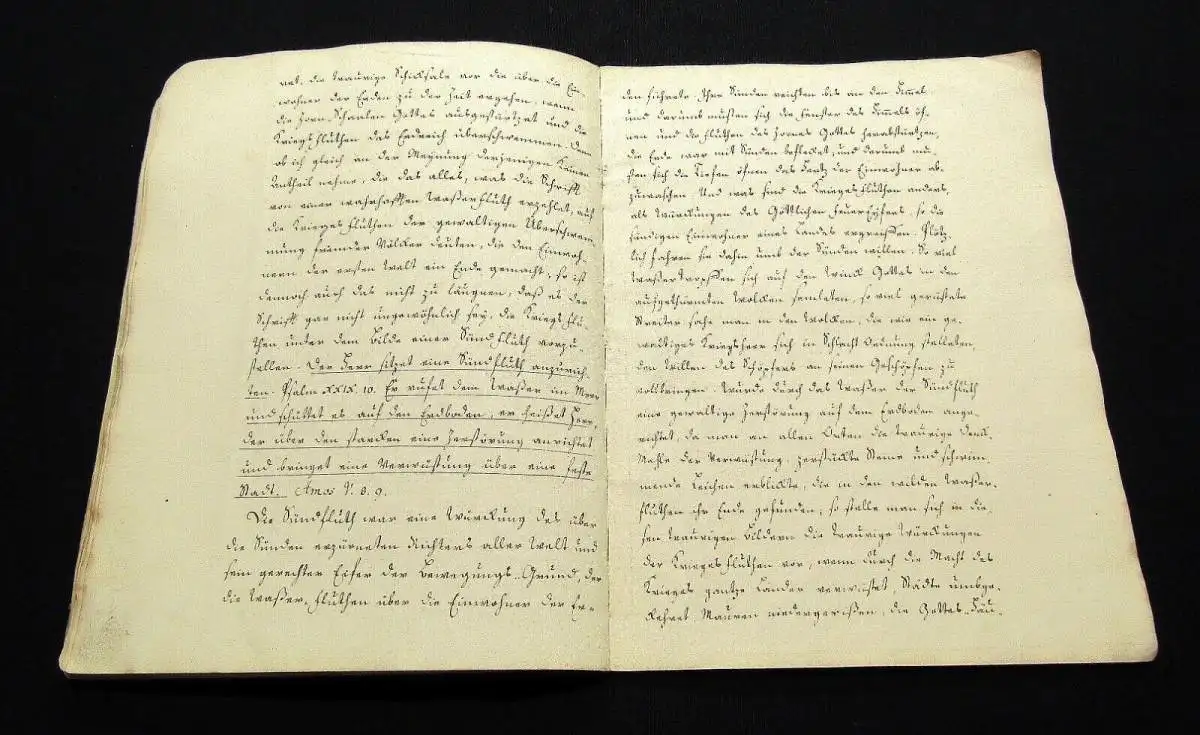 art, die traurige Schicksale vor die über die Ein-
wohner der Erden zu der Zeit ergehen, wenn
die Zorn-Schaalen Gottes ausgestürtzet und die
Kriegs Fluthen das Erdreich überschwemmen. Denn
ob ich gleich an der Meynung derjenigen keinen
Antheil nehme, die das alles, was die Schrifft
von einer wahrhafften Waßerfluth erzehlet, auf
die Krieges Fluthen der gewaltigen Überschwem-
mung fremder Völcker deuten, die den Einwoh-
nern der ersten Welt ein Ende gemacht, so ist
dennoch auch das nicht zu läugnen, daß es der
Schrifft gar nicht ungewöhnlich sey, die Kriegs Flu-
then unter dem Bilde einer Sündfluth vorzu-
stellen. Der Herr sitzet eine Sündfluth anzurich-
ten. Psalm XXIX. 10. Er rufet dem Waßer im Meer
und schüttet es auf den Erdboden, er heißet Herr,
der über den starcken eine Zerstörung anrichtet
und bringet eine Verwüstung über eine feste
Stadt. Amos V. 8. 9.
Die Sündfluth war eine Würckung des über
die Sünden erzürneten Richters aller Welt und
sein gerechter Eifer der Bewegungs-Grund, der
die Waßer-Fluthen über die Einwohner der Er-
den führete. Ihre Sünden reichten bis an den Himmel
und darumb mußten sich die Fenster des Himmels öf-
nen und die Fluthen des Zornes Gottes herabstürtzen,
die Erde war mit Sünden beflecket, und darumb mu-
sten sich die Tiefen öfnen das Hertz der Einwohner ab-
zuwaschen. Und was sind die Krieges Fluthen anders,
als Würckungen des Göttlichen Feuer Eyfers, so die
sündigen Einwohner eines Landes ergreiffen. Plötz-
lich fahren sie dahin umb der Sünden willen. So viel
Waßer Tropffen sich auf den Winck Gottes in den
aufgethürmten Wolcken samleten, so viel gerüstete
Streiter sahe man in den Wolcken, die wie ein ge-
waltiges Kriegsheer sich in Schlacht Ordnung stelleten,
den Willen des Schöpfers an seinen Geschöpfen zu
vollbringen. Wurde durch das Waßer der Sündfluth
eine gewaltige Zerstörung auf dem Erdboden ange-
richtet, da man an allen Orten die traurige Denck-
Mahle der Verwüstung, zerstückte Steine und schwim-
mende Leichen erblickte, die in den wilden Waßer-
fluthen ihr Ende gefunden, so stelle man sich in die-
sen traurigen Bildern die traurige Würckungen
der Krieges Fluthen vor, wenn durch die Macht des
Krieges gantze Länder verwüstet, Städte umbge-
kehret, Mauren niedergerißen, die Gottes-Häu-